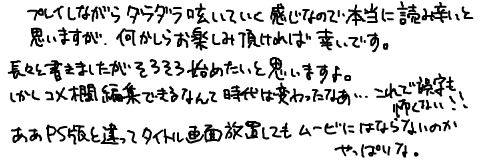 プレイしながらダラダラ呟いていく感じなので本当に読み辛いと
思いますが、何かしらお楽しみ頂ければ幸いです。
長々と書きましたがそろそろ始めたいと思いますよ。
しかしコメ欄編集できるなんて時代は変わったなあ…これで誤字も
怖くない!!
ああPS版と違ってタイトル画面放置してもムービーにはならないのか
やっぱいな。